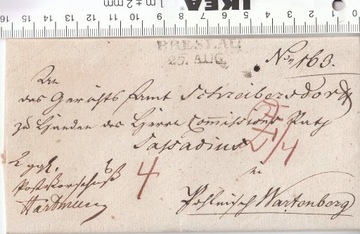 1 m ± 2 mm IKEA
16 15 14 13 12 11 10 9 8 7 6 5 4 3 2 1 0
BRESLAU
25. AUG.
No 163.
An
das Gerichts Amt Schreibersdorf
zu Händen des Herrn Comissions Rath
Cassadius
in
4
Postvorschuß
Hartmann
Pohlnisch Wartenberg